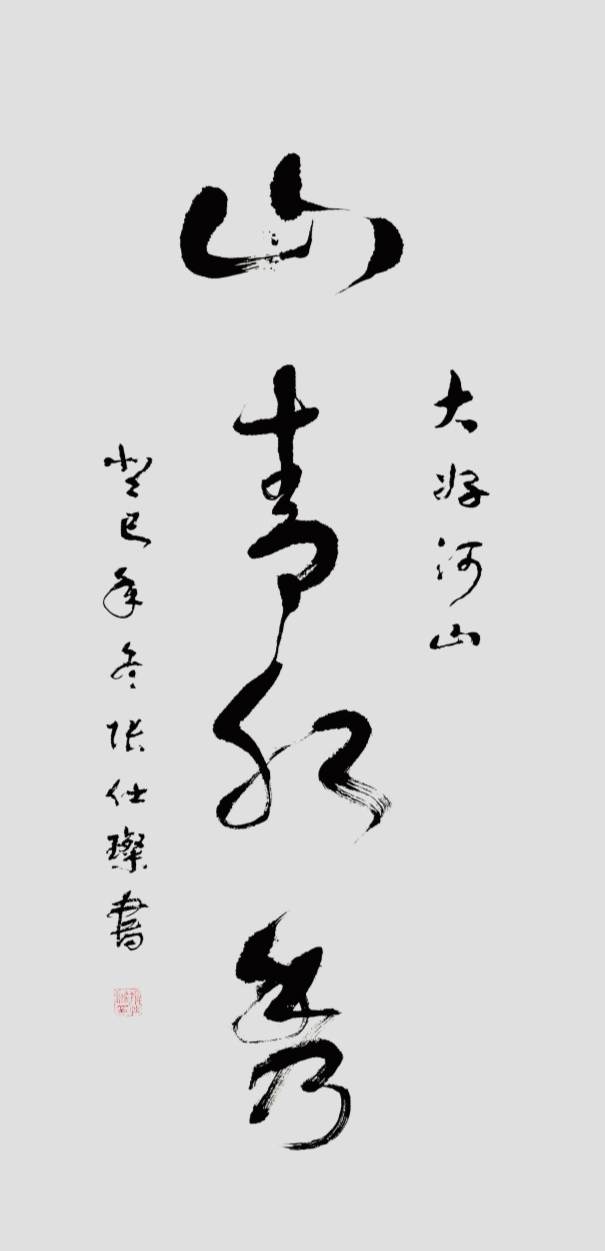 大好河山
山青水秀
癸巳年冬张仕璨書